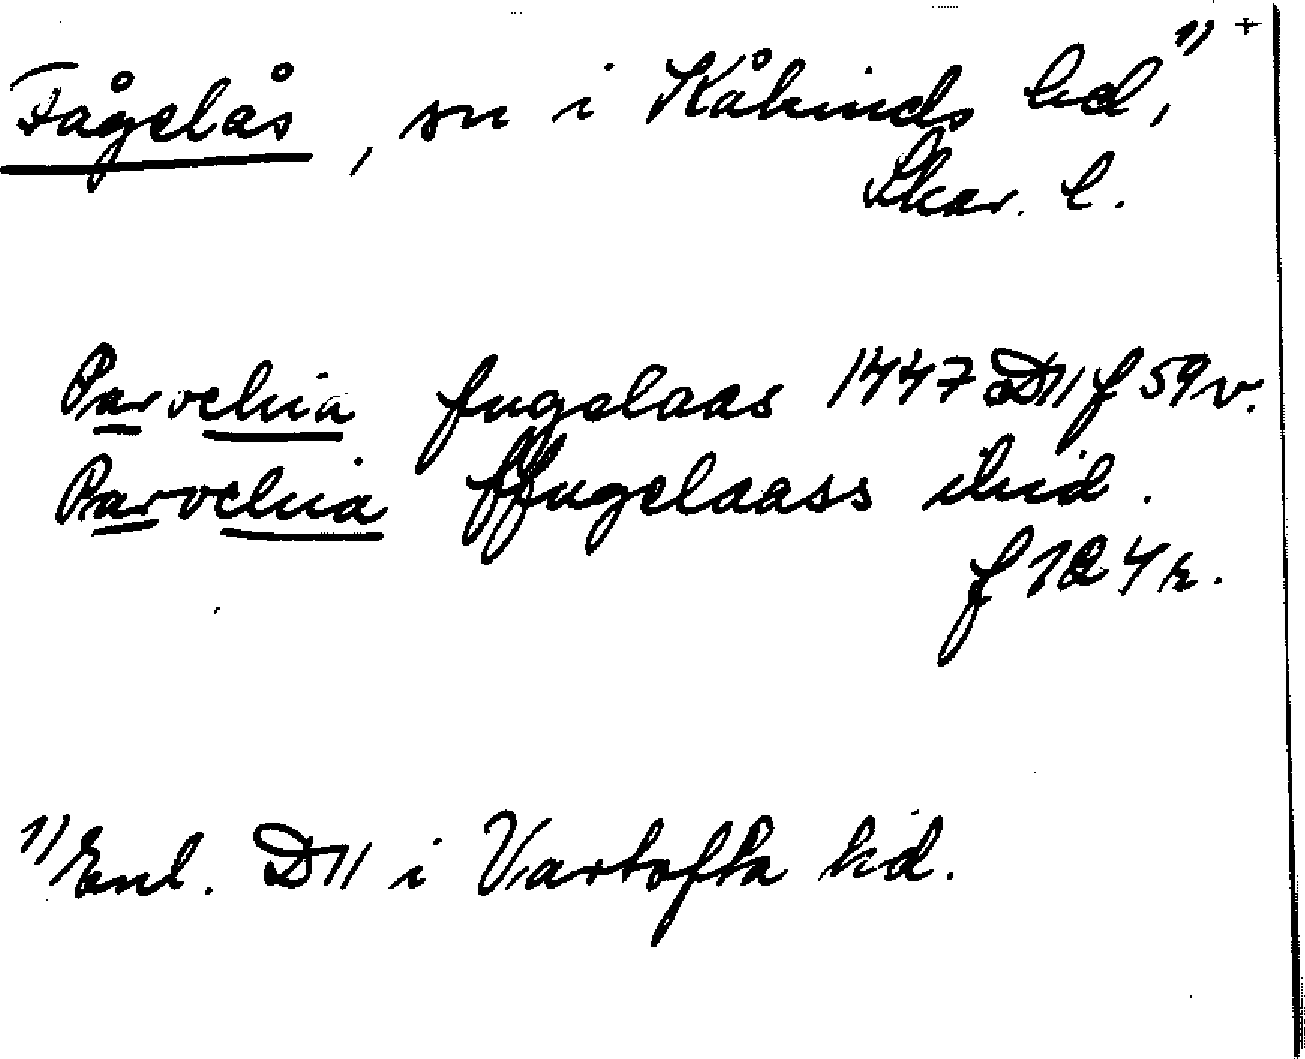 Fågelås, sn i Kåkinds hd,¹⁾ +
Skar. l.
Parochia fugelaas 1447 D11 f 59 v.
Parochia ffugelaass ibid.
f 124 r.
¹⁾ Enl. D11 i Vartofta hd.